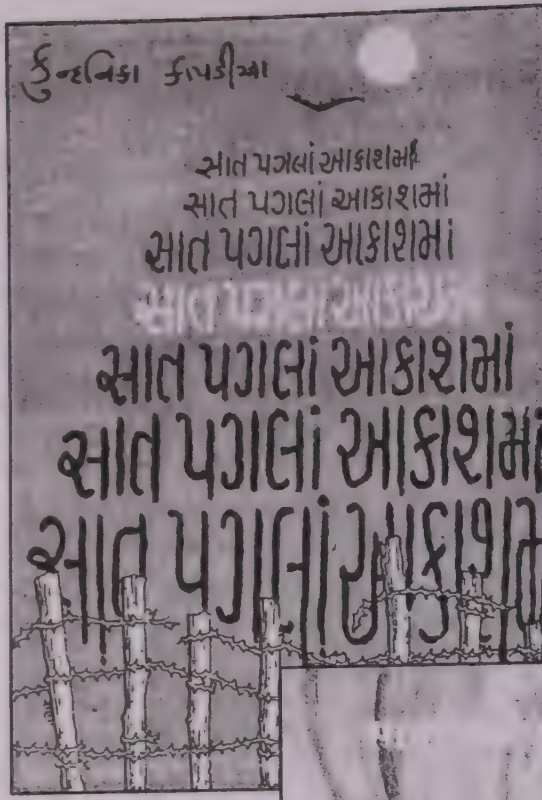 કુન્દનિકા કાપડીઆ
સાત પગલાં આકાશમાં
સાત પગલાં આકાશમાં
સાત પગલાં આકાશમાં
સાત પગલાં આકાશમાં
સાત પગલાં આકાશમાં
સાત પગલાં આકાશમાં
સાત પગલાં આકાશમાં